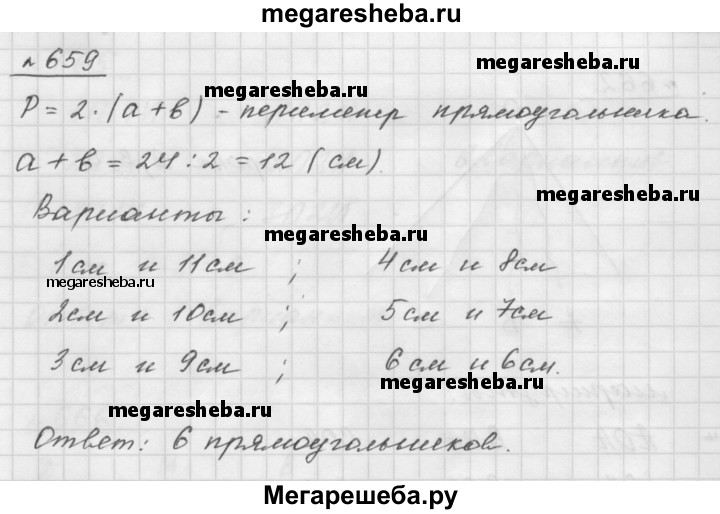 megaresheba.ru
№659
megaresheba.ru
P = 2 · (a + b) - периметр прямоугольника.
a + b = 24 : 2 = 12 (см).
megaresheba.ru
Варианты:
megaresheba.ru
1см и 11см ; 4см и 8см
megaresheba.ru
2см и 10см ; 5см и 7см
megaresheba.ru
3см и 9см ; 6см и 6см.
megaresheba.ru
megaresheba.ru
Ответ: 6 прямоугольников.
megaresheba.ru
Мегарешеба.ру